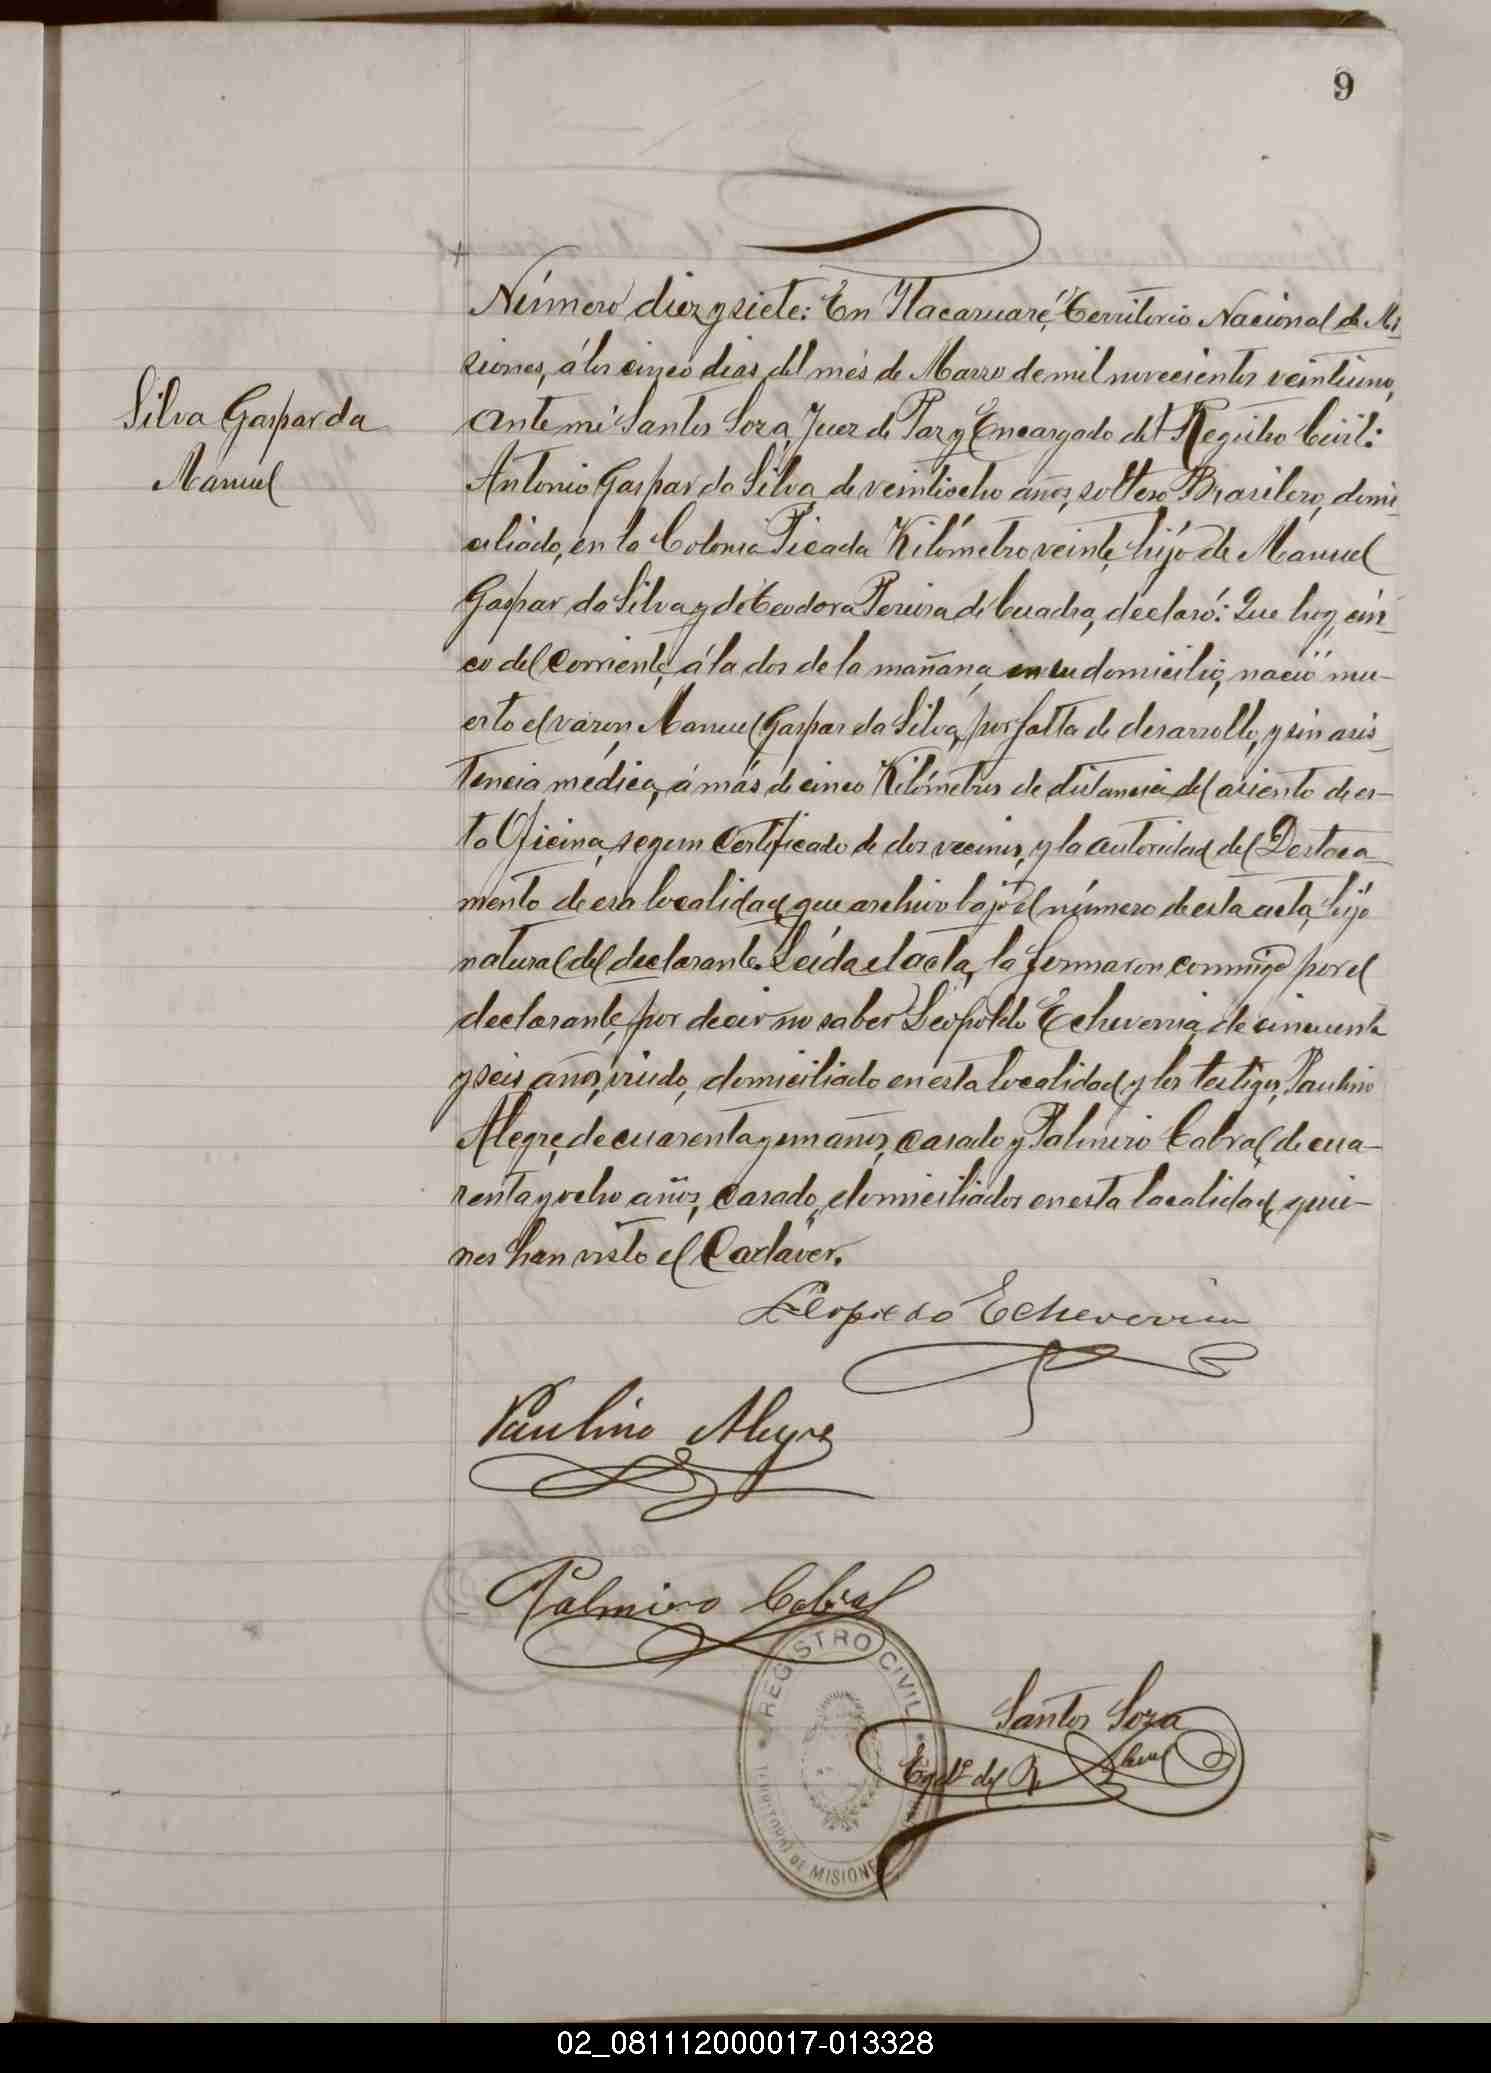 9
Número diez y siete: En Itacaruaré, Territorio Nacional de Mi-
siones, á los cinco dias del més de Marzo de mil novecientos veintiuno,
Silva Gaspar da
Manuel
ante mi Santos Soza, Juez de Paz y Encargado del Registro Civil:
Antonio Gaspar da Silva, de veintiocho años, soltero Brasilero, domi-
ciliado, en la Colonia Picada Kilómetro veinte, hijo de Manuel
Gaspar da Silva y de Teodora Pereira de Cuadra, declaró: Que hoy, cin-
co del corriente, á la dos de la mañana, en su domicilio, nació mu-
erto el varon, Manuel Gaspar da Silva, por falta de desarrollo, y sin asis-
tencia médica, á más de cinco Kilómetros de distancia del asiento de es-
ta Oficina, segun certificado de dos vecinos, y la autoridad del Destaca-
mento de esa localidad, que archivo bajo el número de esta acta, hijo
natural del declarante. Leída el acta, la firmaron conmigo por el
declarante, por decir no saber Leopoldo Echeverria, de cincuenta
y seis años, viudo, domiciliado en esta localidad y los testigos, Paulino
Alegre, de cuarenta y un años, casado y Palmiro Cabral, de cua-
renta y ocho años, casado, domiciliados en esta localidad, quie-
nes han visto el Cadáver.
Leopoldo Echeverria
Paulino Alegre
Palmiro Cabral
REGISTRO CIVIL
TERRITORIO DE MISIONES
Santos Soza
Egdo. del R. Civil
02_081112000017-013328